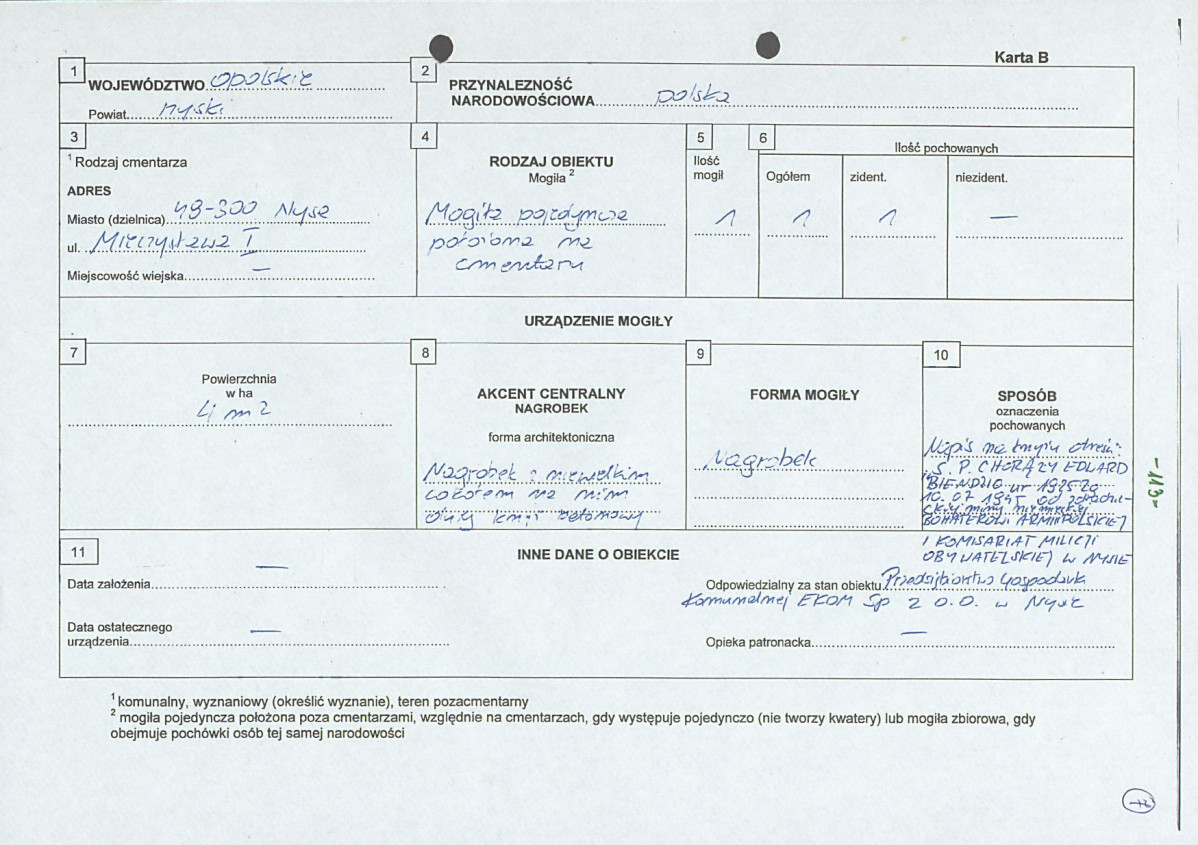 Karta B
1
WOJEWÓDZTWO opolskie
Powiat nyski
2
PRZYNALEZNOŚĆ
NARODOWOŚCIOWA polska
3
1 Rodzaj cmentarza
ADRES
Miasto (dzielnica) 48-300 Nysa
ul. Mieczysława I
Miejscowość wiejska —
4
RODZAJ OBIEKTU
Mogiła 2
Mogiła pojedyncza
położona na
cmentarzu
5
Ilość
mogił
1
6
Ilość pochowanych
Ogółem zident. niezident.
1 1 —
URZĄDZENIE MOGIŁY
7
Powierzchnia
w ha
4 m2
8
AKCENT CENTRALNY
NAGROBEK
forma architektoniczna
Nagrobek z niewielkim
cokołem na nim
duży krzyż betonowy
9
FORMA MOGIŁY
Nagrobek
10
SPOSÓB
oznaczenia
pochowanych
Napis na krzyżu o treści:
"Ś. P. CHORĄŻY EDUARD
BIENDZIO ur 1925
10.07 1945 od
miny niemieckiej
BOHATEROWI ARMII POLSKIEJ
I KOMISARIAT MILICJI
OBYWATELSKIEJ W NYSIE
11
INNE DANE O OBIEKCIE
Data założenia —
Data ostatecznego
urządzenia —
Odpowiedzialny za stan obiektu Przedsiębiorstwo Gospodarki
Komunalnej EKOM Sp z o.o. w Nysie
Opieka patronacka —
1 komunalny, wyznaniowy (określić wyznanie), teren pozacmentarny
2 mogiła pojedyncza położona poza cmentarzami, względnie na cmentarzach, gdy występuje pojedynczo (nie tworzy kwatery) lub mogiła zbiorowa, gdy
obejmuje pochówki osób tej samej narodowości
-113-